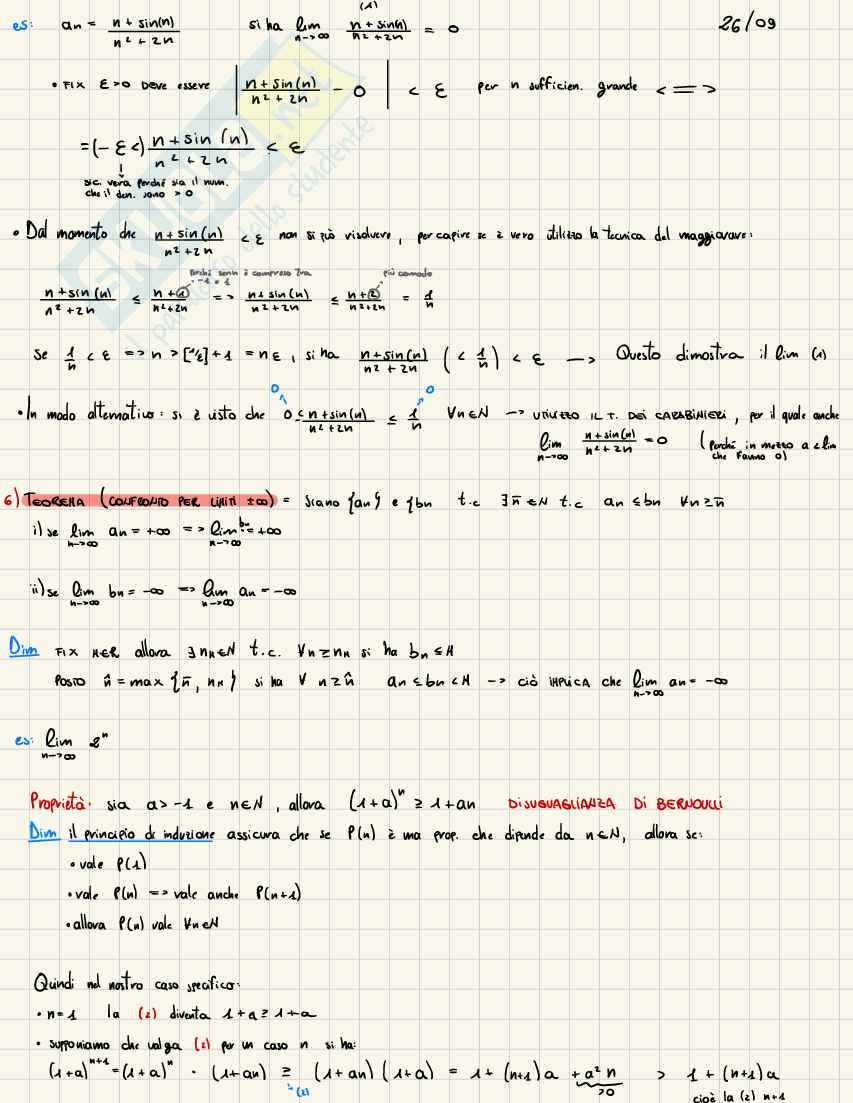 (1)
es: an = n + sin(n) / n² + 2n si ha lim n->∞ n + sin(n) / n² + 2n = 0 26/09
• FIX ε>0 DEVE ESSERE | n + sin(n) / n² + 2n - 0 | < ε per n sufficien. grande <=>
= (- ε <) n + sin (n) / n² + 2n < ε
sic. vera perché sia il num.
che il den. sono > 0
• Dal momento che n + sin(n) / n² + 2n < ε non si può risolvere, per capire se è vero utilizzo la tecnica del maggiorare:
perché senn è compreso tra -1 e 1 più comodo
n + sin(n) / n² + 2n ≤ n + 1 / n² + 2n => n + sin(n) / n² + 2n ≤ n + 2 / n² + 2n = 1/n
Se 1/n < ε => n > [1/ε] + 1 = nε, si ha n + sin(n) / n² + 2n ( < 1/n ) < ε —> Questo dimostra il lim (1)
0 0
• In modo alternativo: si è visto che 0 ≤ n + sin(n) / n² + 2n ≤ 1/n ∀n∈N —> UTILIZZO IL T. DEI CARABINIERI, per il quale anche
lim n->∞ n + sin(n) / n² + 2n = 0 (perché in mezzo a 2 lim
che fanno 0)
6) TEOREMA (CONFRONTO PER LIMITI ±∞) = siano {an} e {bn t.c ∃ n̄ ∈ N t.c an ≤ bn ∀n ≥ n̄
i) se lim n->∞ an = +∞ => lim n->∞ bn = +∞
ii) se lim n->∞ bn = -∞ => lim n->∞ an = -∞
Dim FIX M∈R allora ∃ nM∈N t.c. ∀n ≥ nM si ha bn ≤ M
POSTO n̂ = max {n̄, nM} si ha ∀ n ≥ n̂ an ≤ bn < M —> ciò IMPLICA che lim n->∞ an = -∞
es: lim n->∞ 2ⁿ
Proprietà· sia a > -1 e n∈N, allora (1+a)ⁿ ≥ 1+an DISUGUAGLIANZA DI BERNOULLI
Dim il principio di induzione assicura che se P(n) è una prop. che dipende da n∈N, allora se:
• vale P(1)
• vale P(n) => vale anche P(n+1)
• allora P(n) vale ∀n∈N
Quindi nel nostro caso specifico:
• n=1 la (2) diventa 1+a ≥ 1+a
• supponiamo che valga (2) per un caso n si ha:
(1+a)ⁿ⁺¹ = (1+a)ⁿ · (1+an) ≥ (1+an) (1+a) = 1 + (n+1)a + a²n > 1 + (n+1)a
(2) >0 cioè la (2) n+1
SKUOLA.net
il paradiso dello studente